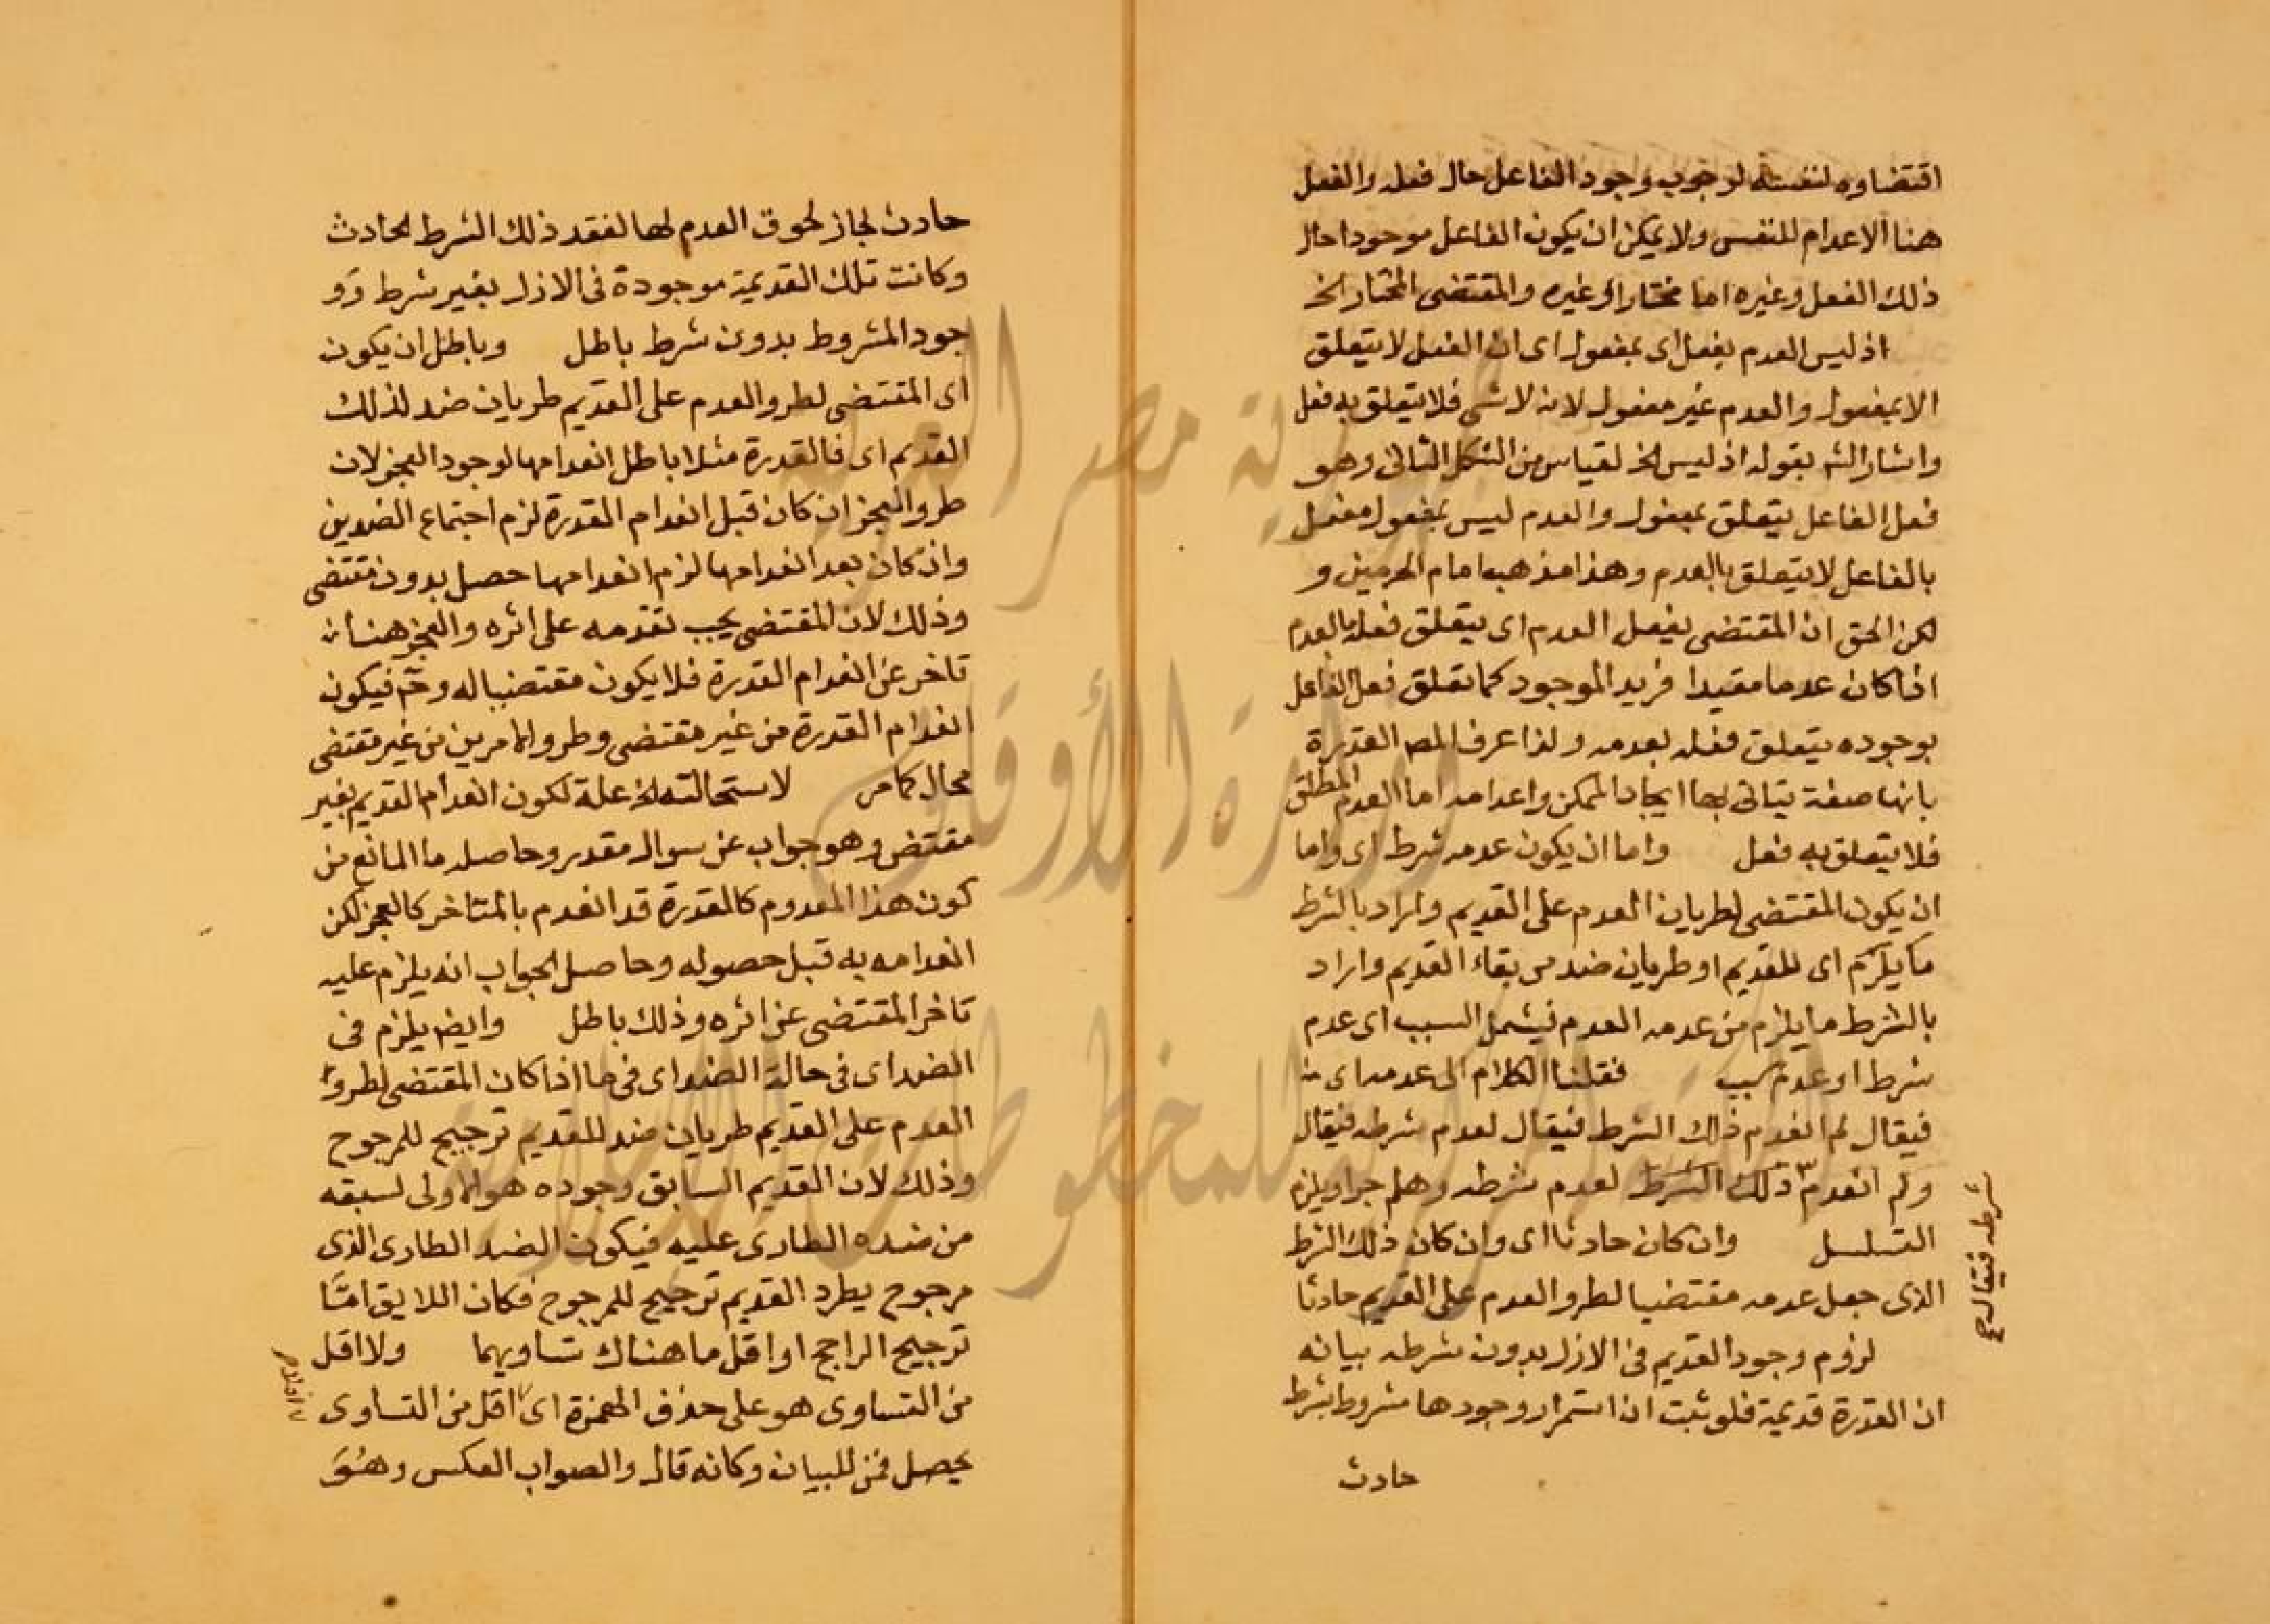 اقتضاوه لنفسه لوجوب وجود الفاعل حال فعله والفعل
هنا الاعدام للنفس ولا يمكن ان يكون الفاعل موجودا حال
ذلك الفعل وغيره اما مختارا او غيره والمقتضى المختار الخ
اذ ليس العدم بفعل اى بمفعول اى ان الفعل لا يتعلق
الا بمفعول والعدم غير مفعول لانه لا شى فلا يتعلق به فعل
واشار الشـ بقوله اذ ليس الخ لقياس من الشكل الثانى وهو
فعل الفاعل يتعلق بمفعول والعدم ليس بمفعول ففعل
بالفاعل لا يتعلق بالعدم وهذا مذهب امام الحرمين و
لكن الحق ان المقتضى يفعل العدم اى يتعلق فعله بالعدم
اذا كان عدما مقيدا فزيد الموجود كما تعلق فعل الفاعل
بوجوده يتعلق فعله بعدمه ولذا عرف المصـ القدرة
بانها صفة يتاتى بها ايجاد الممكن واعدامه اما العدم المطلق
فلا يتعلق به فعل واما ان يكون عدمه شرط اى واما
ان يكون المقتضى لطريان العدم على القديم واراد بالشرط
ما يلزم اى للقديم او طريان ضد س بقاء القديم واراد
بالشرط ما يلزم من عدمه العدم فيشمل السبب اى عدم
شرط او عدم سبب فقلنا الكلام الى عدمه اى
فيقال لم انعدم ذلك الشرط فيقال لعدم شرطه فيقال
ولم انعدم ذلك الشرط لعدم شرطه وهلم جرا ويلزم
شرطه فيقال صح
التسلسل وان كان حادثا اى وان كان ذلك الشرط
الذى جعل عدمه مقتضيا لطرو العدم على القديم حادثا
لزوم وجود القديم فى الازل بدون شرطه بيانه
ان القدرة قديمة فلو ثبت ان استمرار وجودها مشروط بشرط
حادث
حادث لجاز لحوق العدم لها لفقد ذلك الشرط الحادث
وكانت تلك القديمة موجودة فى الازل بغير شرط وو
جود المشروط بدون شرط باطل وباطل ان يكون
اى المقتضى لطرو العدم على القديم طريان ضد لذلك
القديم اى فالقدرة مثلا باطل انعدامها لوجود العجز لان
طرو العجز ان كان قبل انعدام القدرة لزم اجتماع الضدين
وان كان بعد انعدامها لزم انعدامها حصل بدون مقتضى
وذلك لان المقتضى يجب تقدمه على اثره والعجز هنا
تاخر عن انعدام القدرة فلا يكون مقتضيا له وحـ فيكون
انعدام القدرة من غير مقتضى وطرو الامرين من غير مقتضى
محال كما مر لاستحالته الخ علة لكون انعدام القديم بغير
مقتضى وهو جواب عن سوال مقدر وحاصله ما المانع من
كون هذا المعدوم كالقدرة قد انعدم بالمتاخر كالعجز لكن
انعدامه به قبل حصوله وحاصل الجواب انه يلزم عليه
تاخر المقتضى عن اثره وذلك باطل وايضـ يلزم فى
الضد اى فى حالة الضد اى فى ما اذا كان المقتضى لطرو
العدم على القديم طريان ضد للقديم ترجيح للمرجوح
وذلك لان القديم السابق وجوده هو الاولى لسبقه
من ضده الطارى عليه فيكون الضد الطارى الذى
مرجوح يطرد القديم ترجيح للمرجوح فكان اللايق امَّا
ترجيح الراجح او اقل ما هناك تساويهما ولا اقل
من التساوى هو على حذف الهمزة اى اقل من التساوى
يحصل فمن للبيان وكانه قال والصواب العكس وهُوَ
جمهورية مصر العربية
وزارة الأوقاف
المكتبة المركزية للمخطوطات الإسلامية